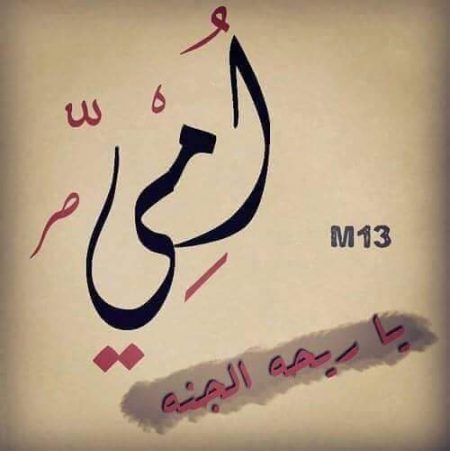 أُمِّي
M13
يا ريحه الجنه